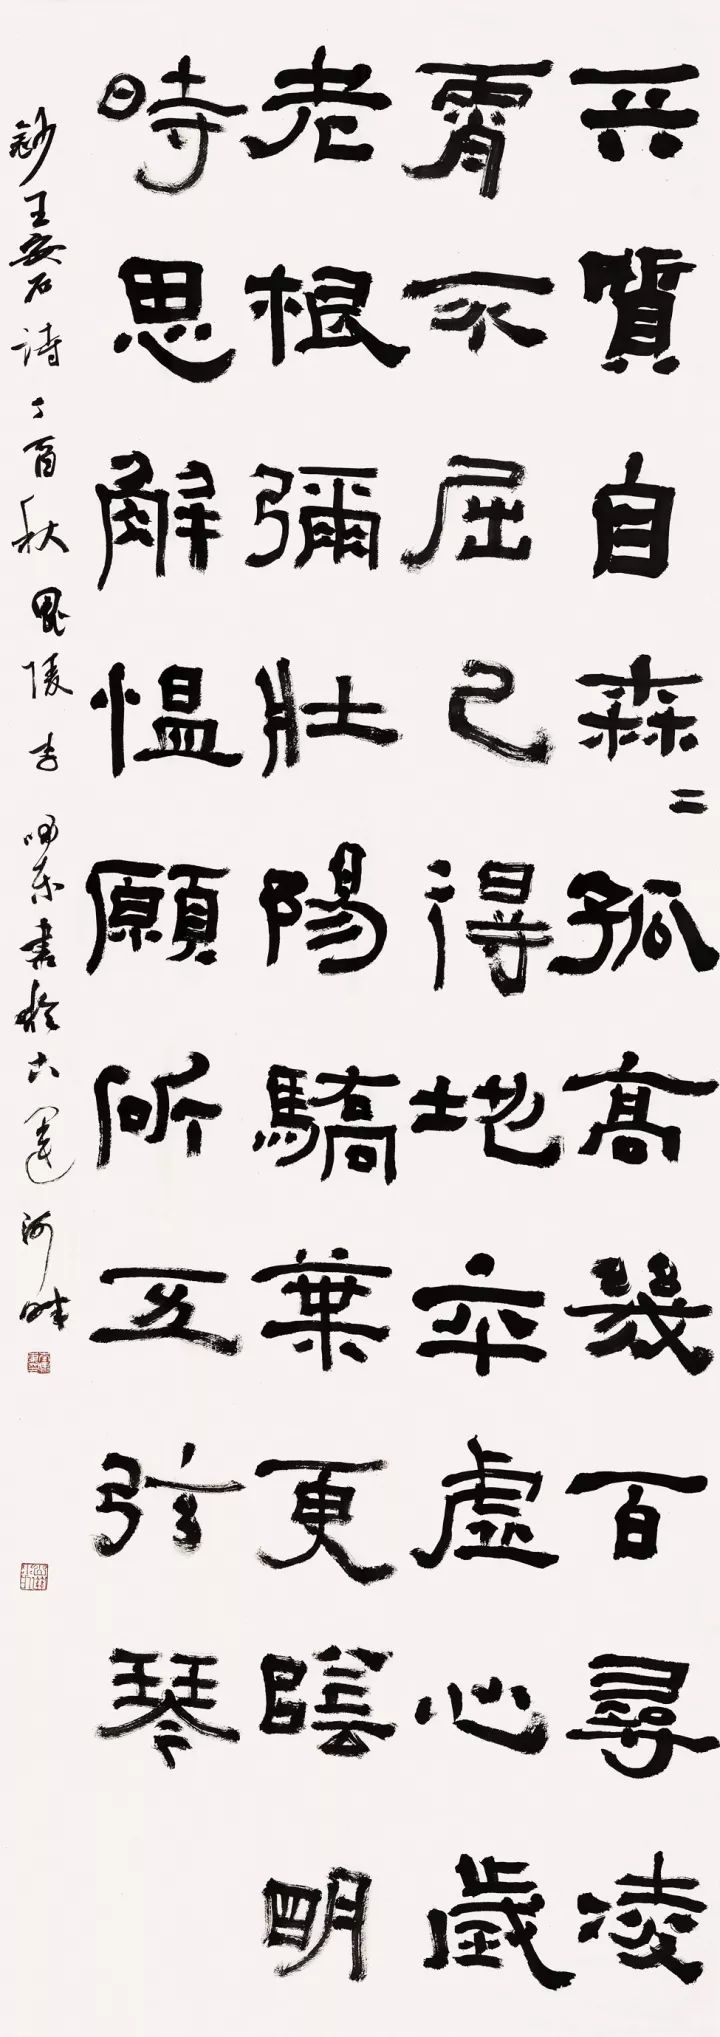 天質自森〻孤高幾百尋凌
霄不屈己得地本虛心歲
老根彌壯陽驕葉更陰明
時思解慍願斫五弦琴
鈔王安石詩丁酉秋毘陵李嘯东書於古運河畔